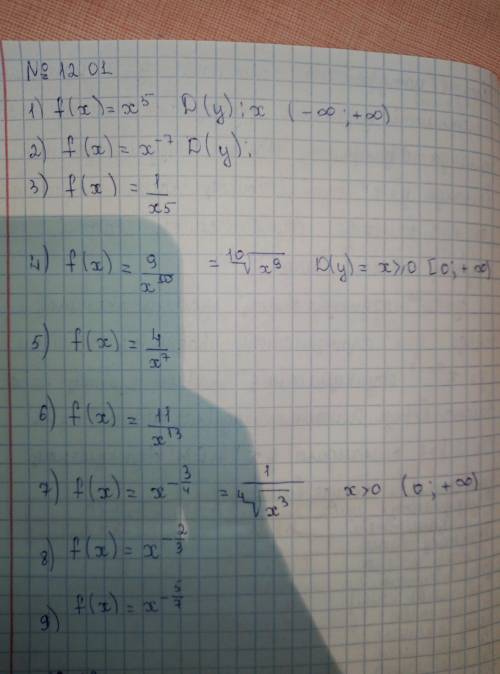 № 12 01
1) f(x) = x⁵ D(y): x (-∞; +∞)
2) f(x) = x⁻⁷ D(y):
3) f(x) = 1/x5
4) f(x) = 9/x¹⁰ = ¹⁰√x⁹ D(y) = x≥0 [0; +∞)
5) f(x) = 4/x⁷
6) f(x) = 11/x¹³
7) f(x) = x^(-3/4) = 1/⁴√x³ x>0 (0; +∞)
8) f(x) = x^(-2/3)
9) f(x) = x^(-5/7)